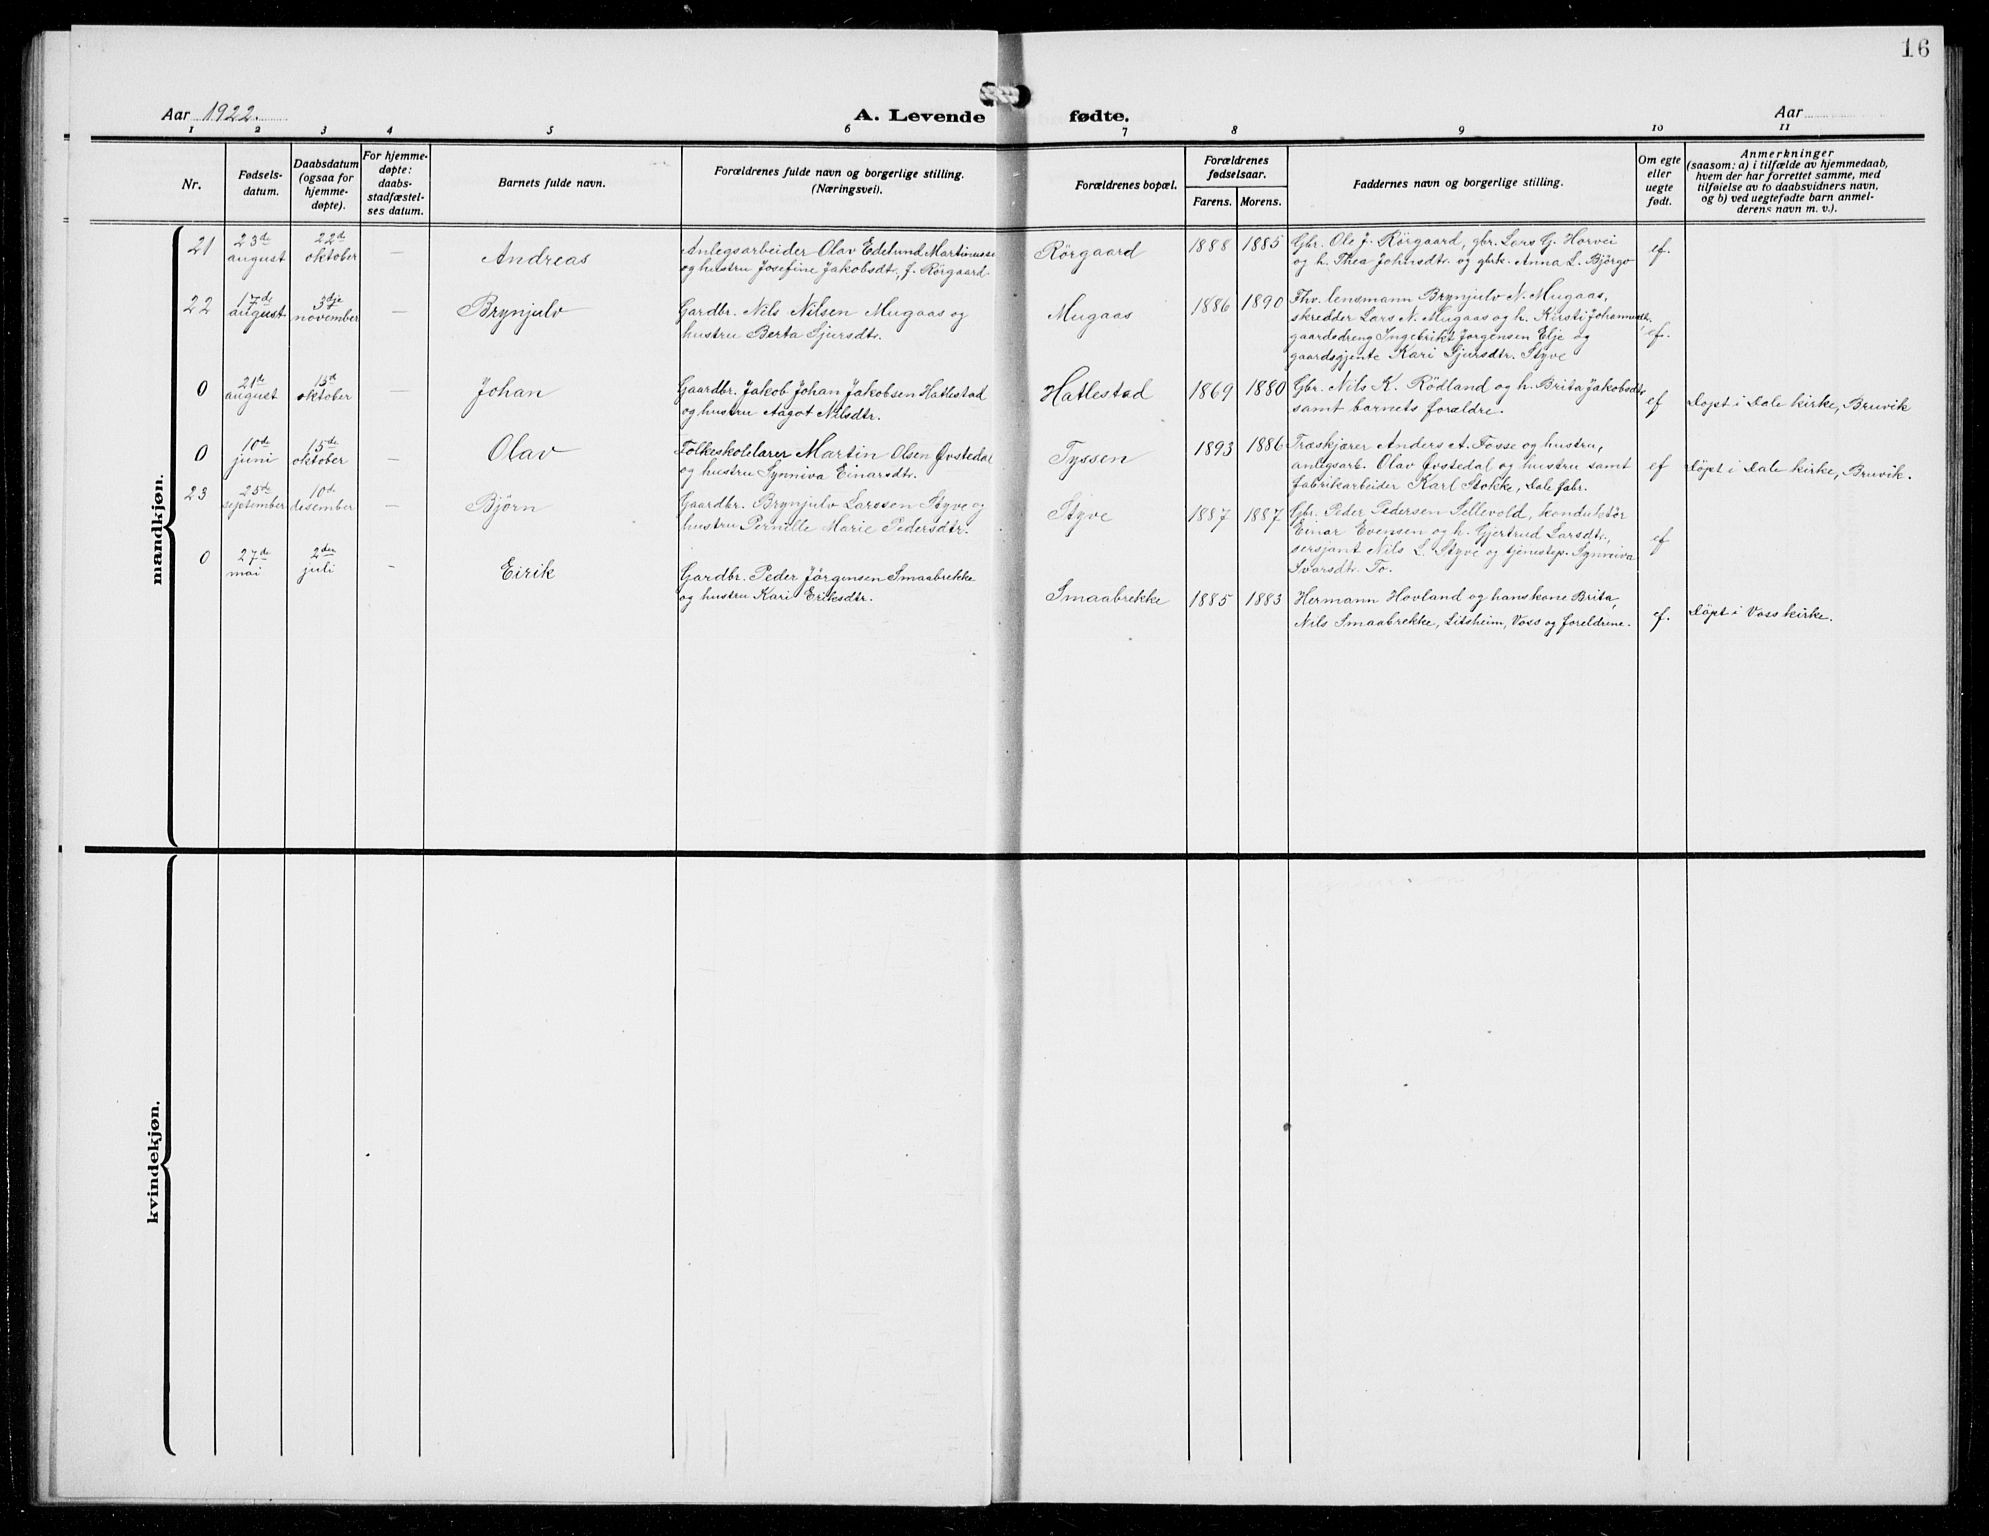 16
Aar 1922.
A. Levende fødte.
Aar
1 2 3 4 5 6 7 8 9 10 11
Nr.
Fødsels-
datum.
Daabsdatum
(ogsaa for
hjemme-
døpte).
For hjemme-
døpte:
daabs-
stadfæstel-
ses datum.
Barnets fulde navn.
Forældrenes fulde navn og borgerlige stilling.
(Næringsvei).
Forældrenes bopæl.
Forældrenes
fødselsaar.
Farens. Morens.
Faddernes navn og borgerlige stilling.
Om egte
eller
uegte
født.
Anmerkninger
(saasom: a) i tilfælde av hjemmedaab,
hvem der har forrettet samme, med
tilføielse av to daabsvidners navn,
og b) ved uegtefødte barn anmel-
derens navn m. v.).
mandkjøn.
21
23de
august
22de
oktober
—
Andreas
Anlegsarbeider Olav Edelund Martinussen
og hustru Josefine Jakobsdtr. f. Rörgaard
Rörgaard
1888 1885
Gbr. Ole J. Rörgaard, gbr. Lars G. Horvei
og h. Thea Johnsdtr. og gbrk. Anna L. Björgo
ef.
22
17de
august
3dje
november
—
Brynjulv
Gardbr. Nils Nilsen Mugaas og
hustru Berta Sjursdtr.
Mugaas
1886 1890
Fhv. lensmann Brynjulv N. Mugaas,
skredder Lars N. Mugaas og h. Kirsti Johannesdtr.
gaardsdreng Ingebrikt Jørgensen Elje og
gaardsgjente Kari Sjursdtr. Styve
ef.
0
21de
august
15de
oktober
—
Johan
Gaardbr. Jakob Johan Jakobsen Hatlestad
og hustru Aagot Nilsdtr.
Hatlestad
1869 1880
Gbr. Nils K. Rödland og h. Brita Jakobsdtr.
samt barnets forældre.
ef
Døpt i Dale kirke, Bruvik
0
10de
juni
15de
oktober
—
Olav
Folkeskolelærer Martin Olsen Øvstedal
og hustru Synniva Einarsdtr.
Tyssen
1893 1886
Træskjærer Anders A. Fosse og hustru,
anlegsarb. Olav Øvstedal og hustru samt
fabrikarbeider Karl Stokke, Dale fabr.
ef
Döpt i Dale kirke, Bruvik.
23
25de
september
10de
desember
—
Bjørn
Gaardbr. Brynjulv Larssen Styve og
hustru Pernille Marie Pedersdtr.
Styve
1887 1887
Gbr. Peder Pedersen Sellevold, konduktör
Einar Evensen og h. Gjertrud Larsdtr.,
sersjant Nils L. Styve og tjenestep. Synneiva
Ivarsdtr. To.
ef
0
27de
mai
2den
juli
-
Eirik
Gardbr. Peder Jörgensen Smaabrekke
og hustru Kari Eriksdtr.
Smaabrekke
1885 1883
Hermann Hovland og hanskone Brita,
Nils Smaabrekke, Litsheim, Voss og foreldrene.
ef.
Döpt i Voss kirke.
kvindekjøn.